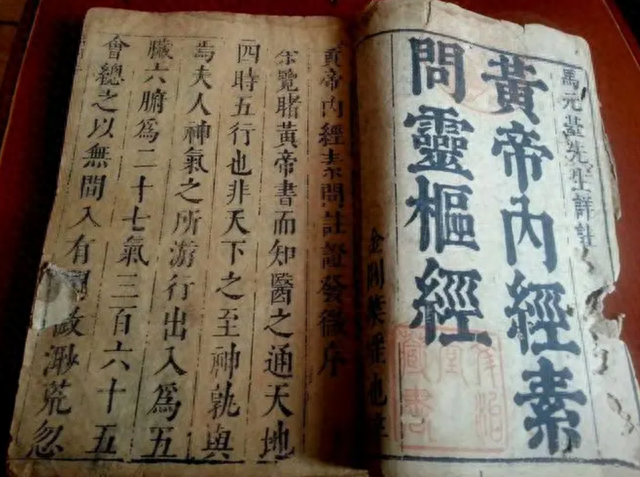 馬元臺先生詳註
黃帝內經素
問靈樞經
金閶葉
黃帝內經素問註證發微序
余覽睹黃帝書而知醫之通天地
四時五行也非天下之至神孰與
焉夫人神氣之所游行出入爲五
臟六腑爲二十七氣三百六十五
會總之以無間入有間渺荒忽